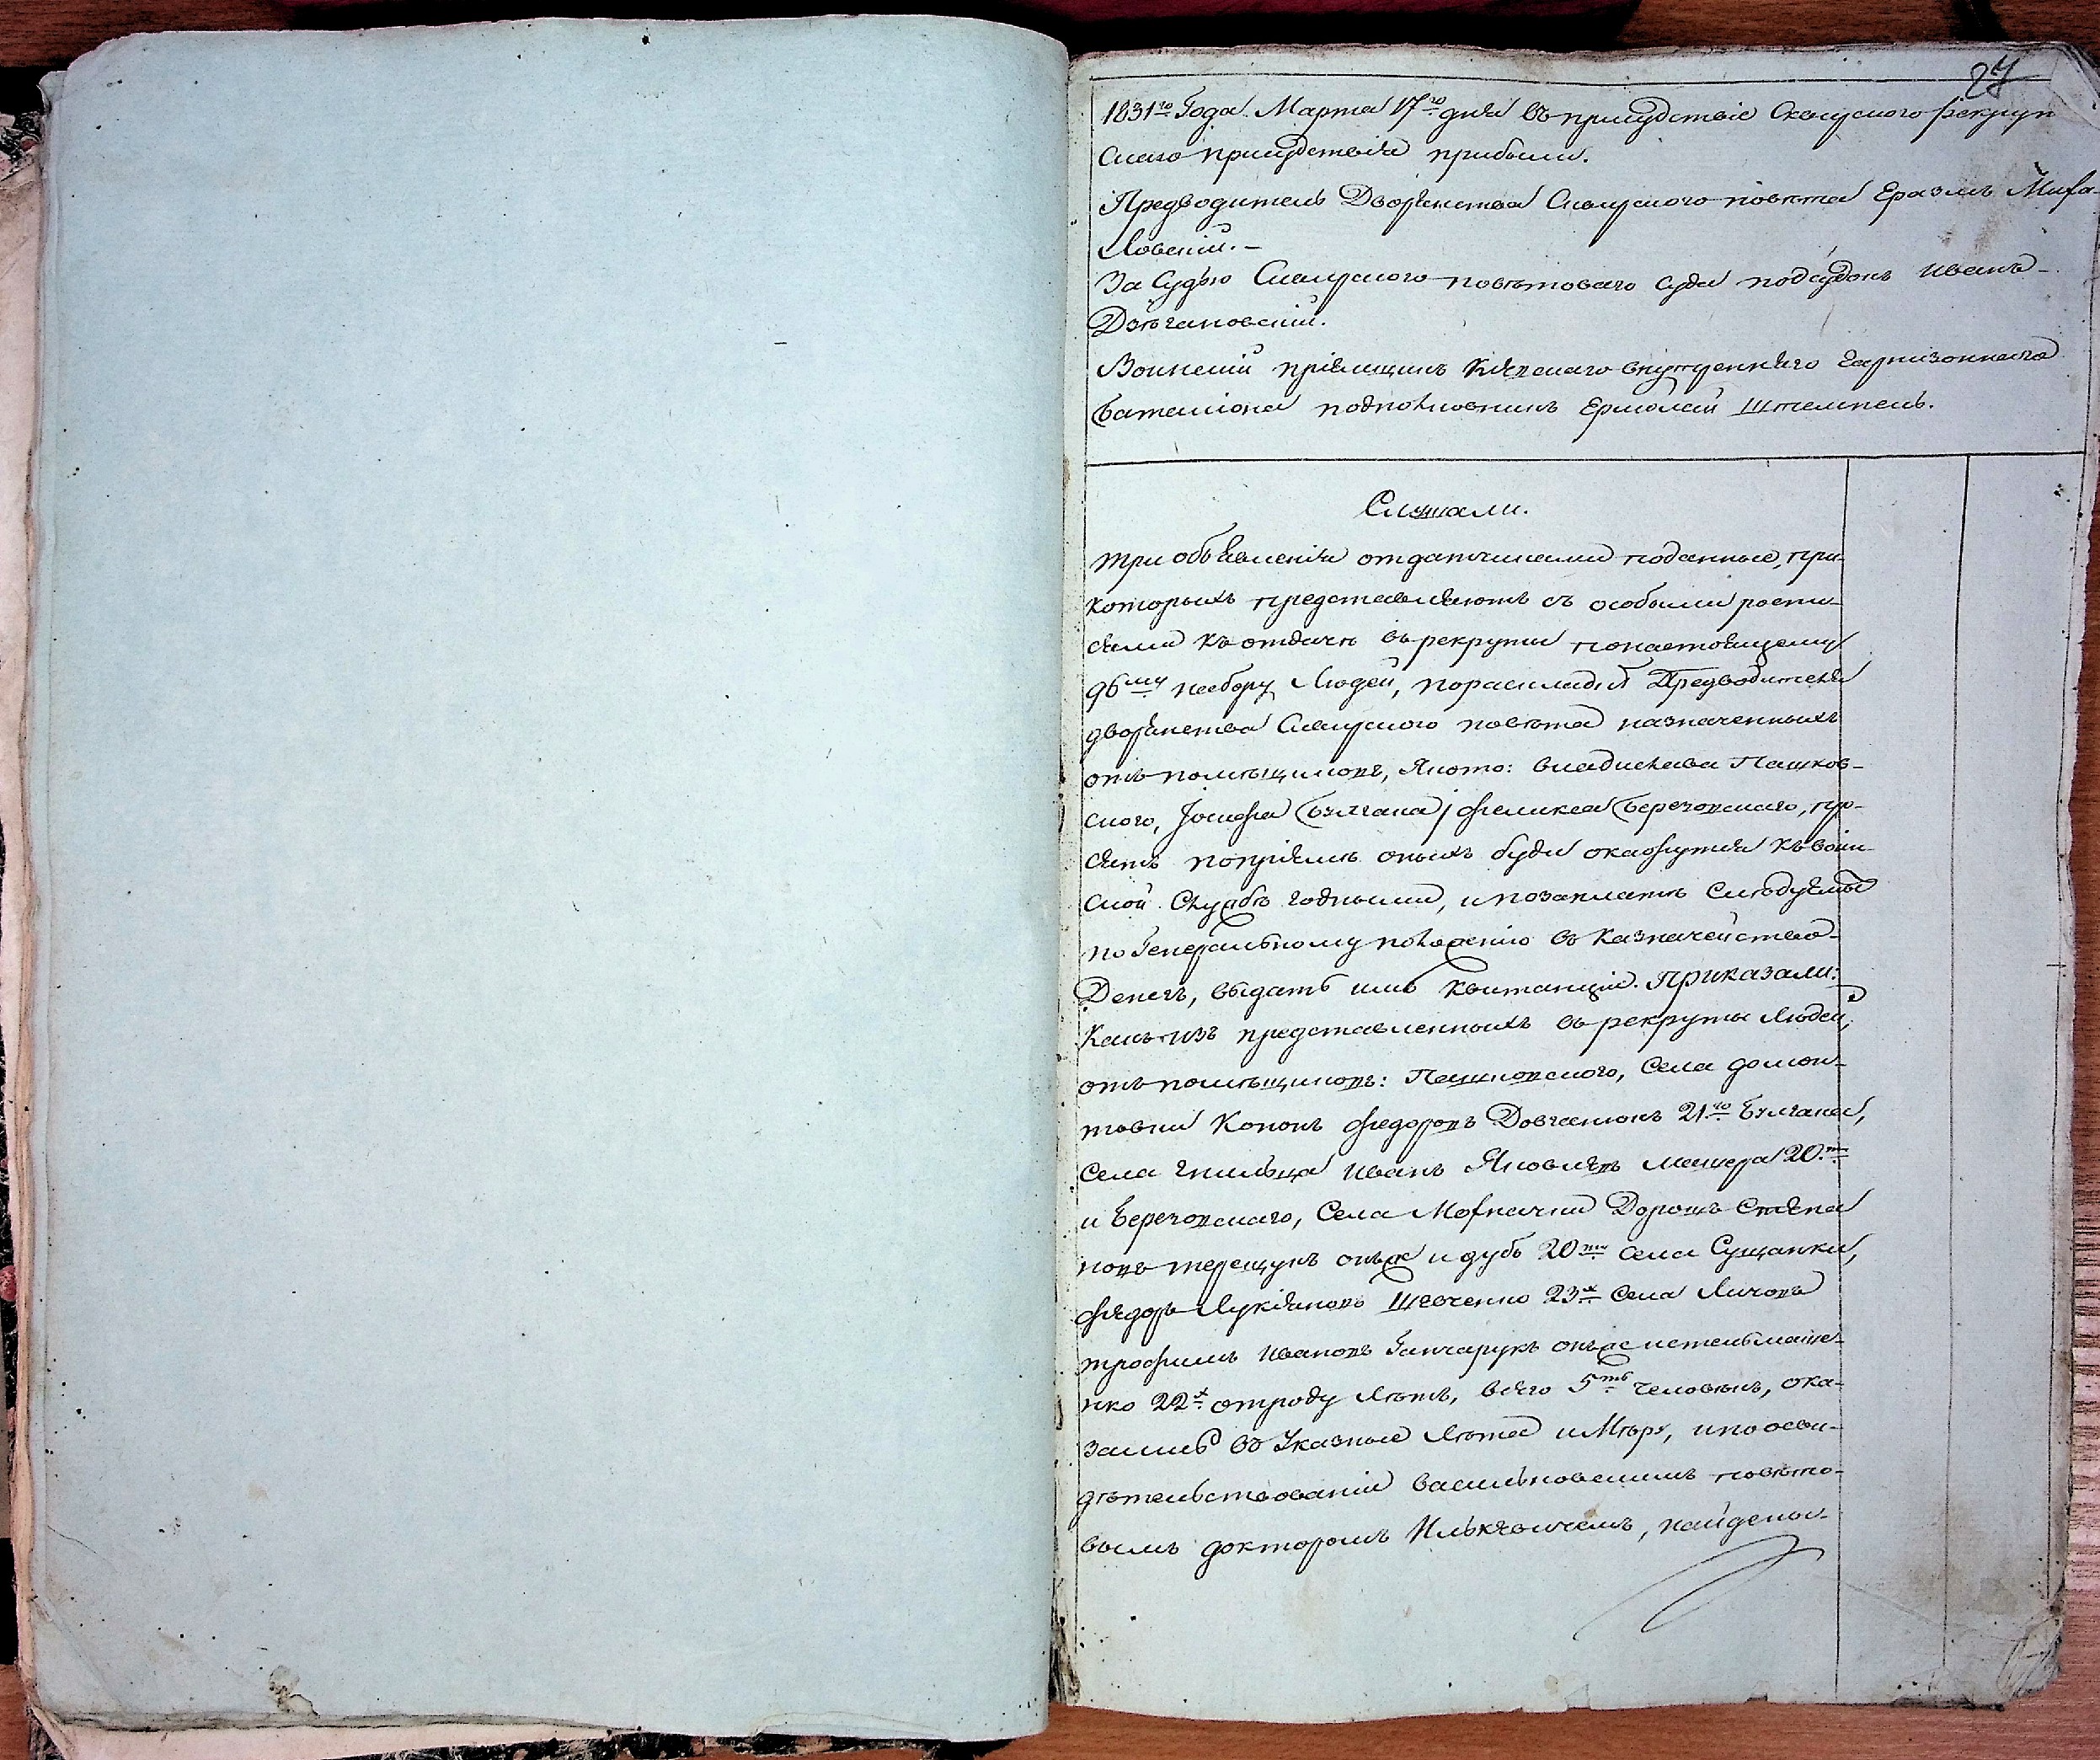 27
1831го Года Марта 17го дня въ присудствіе Сквирского рекрут
скаго присудствія прибыли.
Предводитель Дворянства Сквирского повѣта Еразмъ Миха-
ловскій. –
За Судью Сквирского повѣтоваго Суда подсудокъ Иванъ –
Воинскій пріемщикъ Кіевскаго внутренняго Гарнизоннаго
баталіона подполковникъ Ермолай Штемпель.
Слушали.
три объявленія отдатчиками поданные, при
которыхъ представляютъ съ особыми роспи-
сями къ отдачѣ въ рекруты понастоящему
96му набору Людей, пораскладкѣ Предводителя
дворянства Сквирского повѣта назначенныхъ
отъ помѣщиковъ, Якото: владислава Пашков-
ского, Іосифа Булгака, феликса Березовскаго, про-
сятъ попріемѣ оныхъ буде окажутся къ воин-
ской Службѣ годными, и позаплатѣ Слѣдуемые
по Генеральному положенію въ Казначейство
Денегъ, выдать имъ Квитанціи. Приказали:
Какъ изъ представленныхъ въ рекруты Людей,
отъ помѣщиковъ: Пашковского, Села домон-
товки Кононъ федоровъ Довганюкъ 21го Булгака,
Села Иванъ Яковлевъ 20ти
и Березовскаго, Села Мохначки Дорошъ Степа
новъ терещукъ онъ же и дубъ 20ти Села Сущанки,
фядоръ Лукіяновъ Шевченко 23х Села
трофимъ Ивановъ Ганчарукъ онъ же
нко 22х отроду Лѣтъ, всего 5ть человѣкъ, ока-
зались въ Указные Лѣта и Мѣру, и по осви-
дѣтельствованіи васильковскимъ повѣто-
вымъ докторомъ найдены